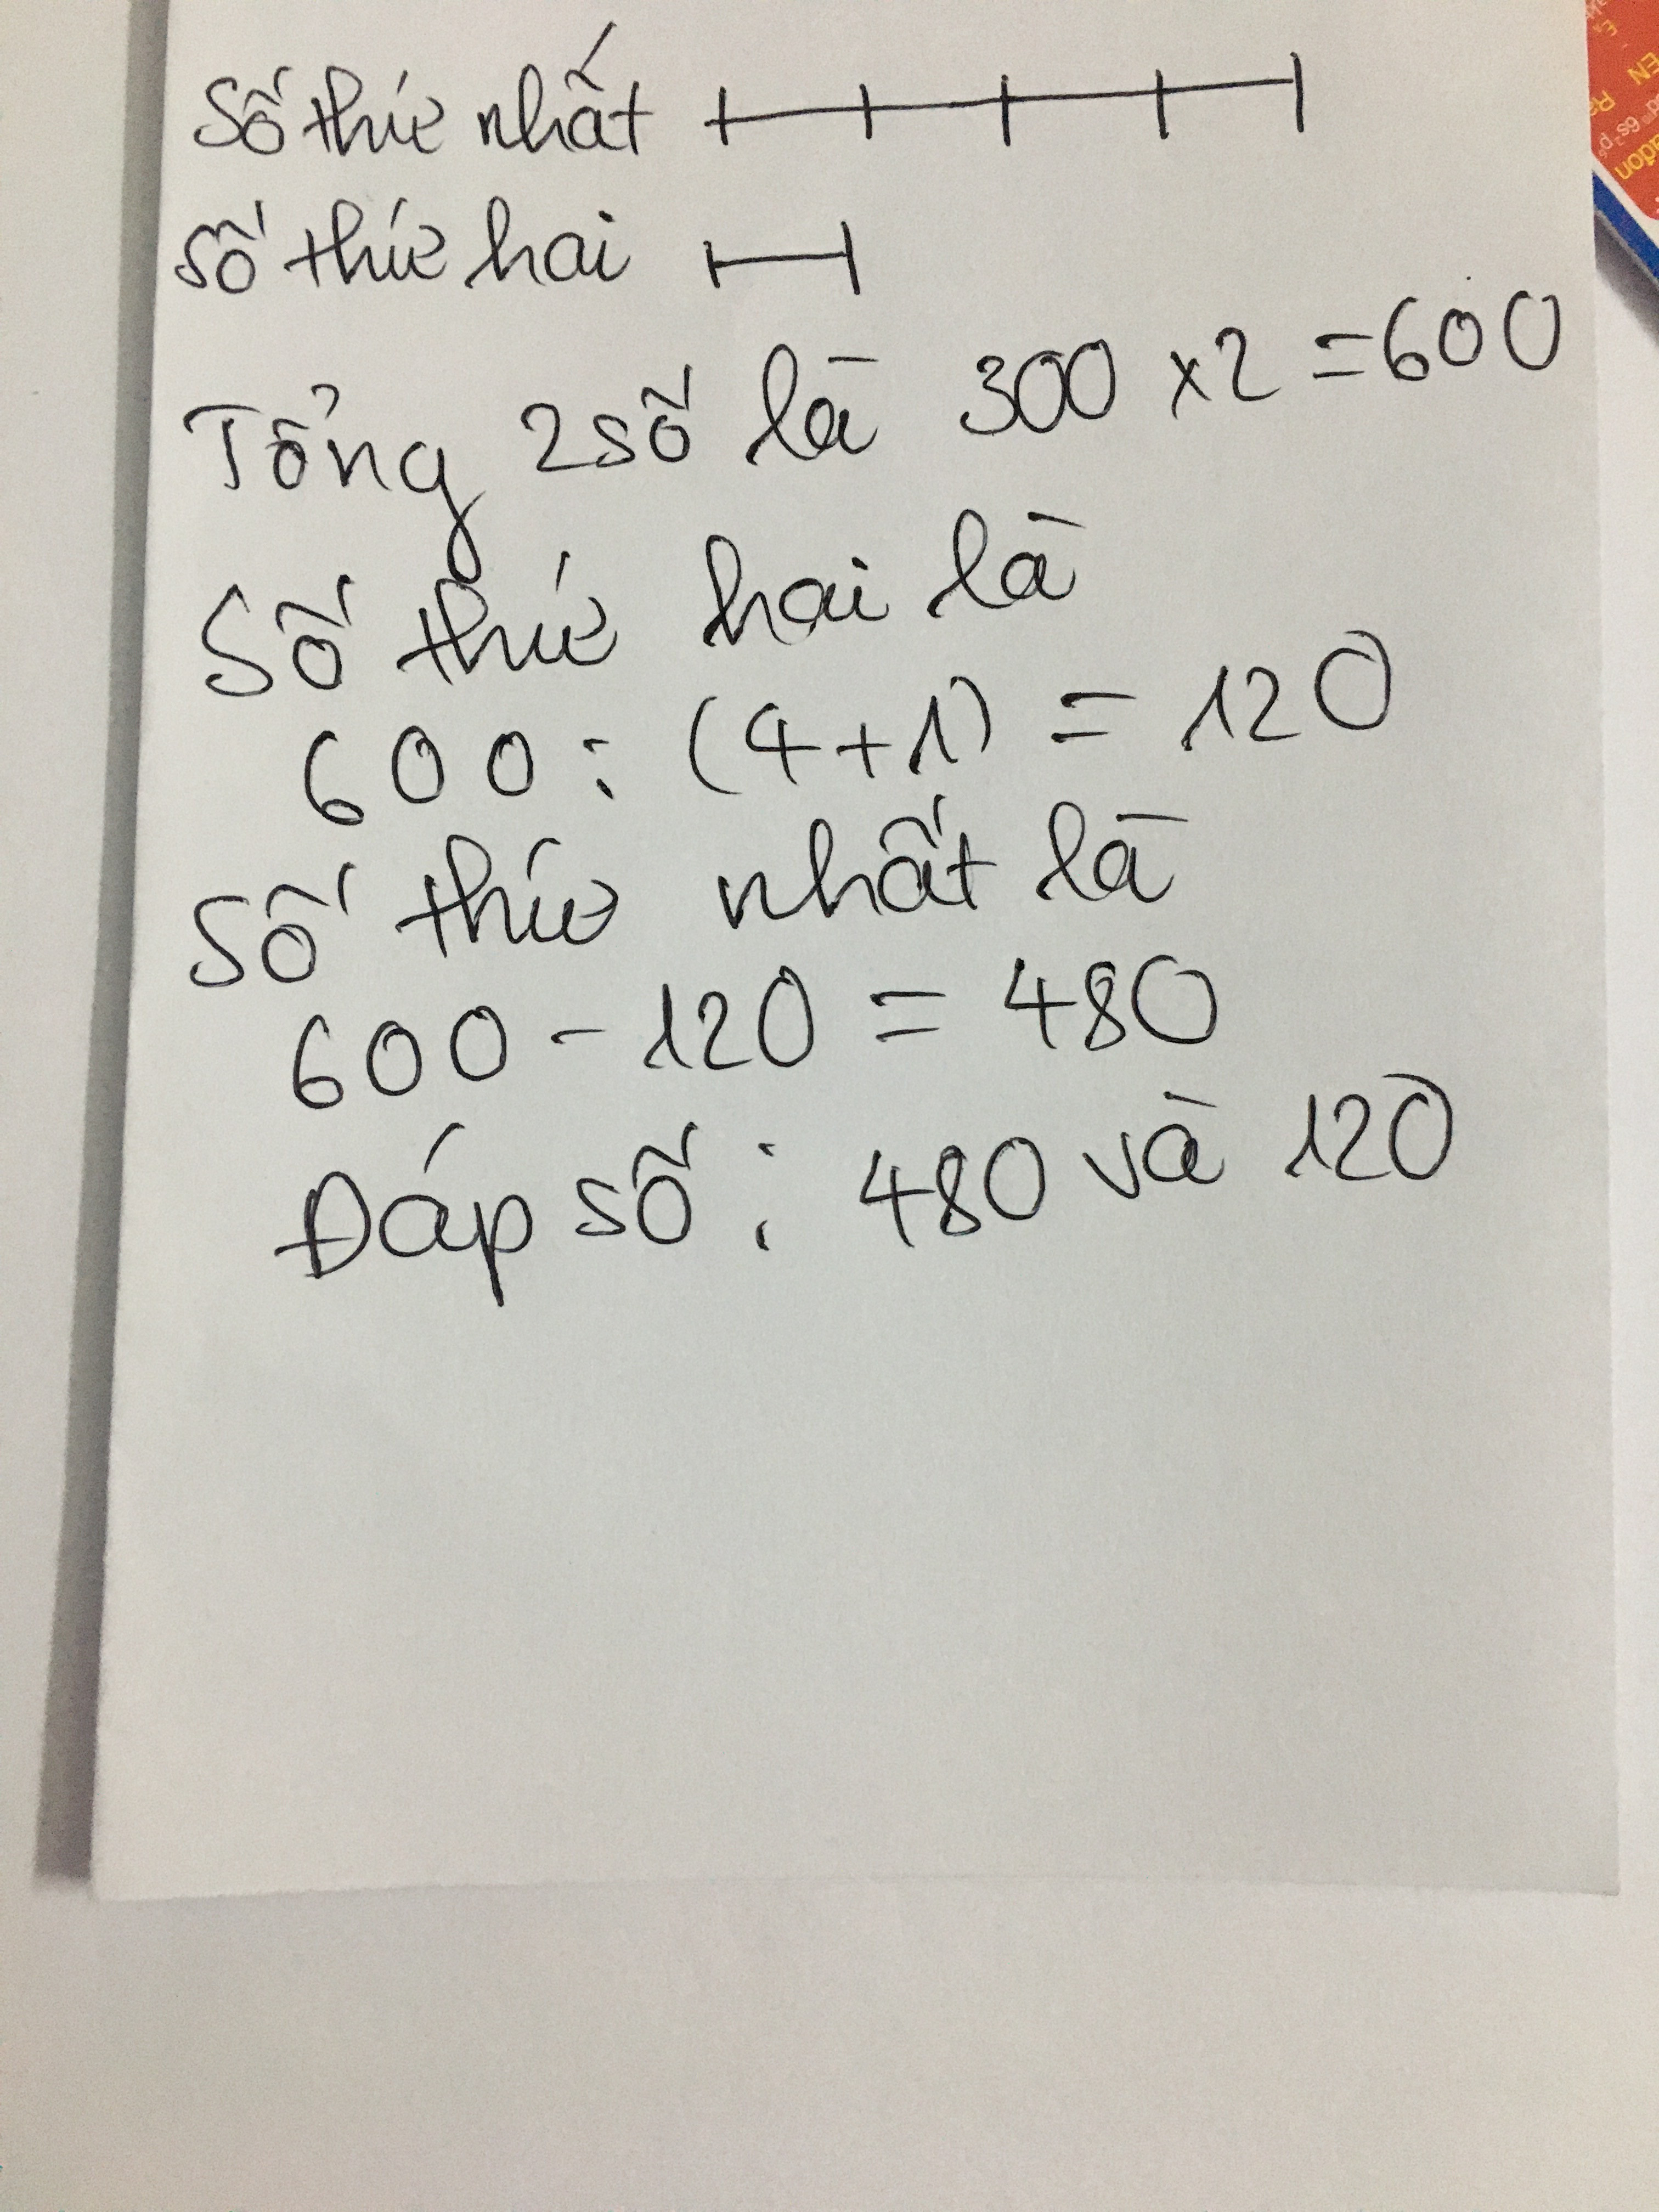 Số thứ nhất
Số thứ hai
Tổng 2 số là 300 x 2 = 600
Số thứ hai là
600 : (4+1) = 120
Số thứ nhất là
600 - 120 = 480
Đáp số : 480 và 120
EN